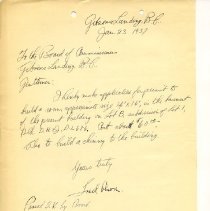 Gibsons Landing B.C.
Jan. 23 1937
To the Board of Commissioners
Gibsons Landing, B.C.
Gentlemen:
I hereby make application for permit to
build a room approximate size 14' x 16', in the basement
of the present building on Lot B, subdivision of Lot 1,
Cost about
Also to build a chimney to the building.
Yours truly
Passed by Board